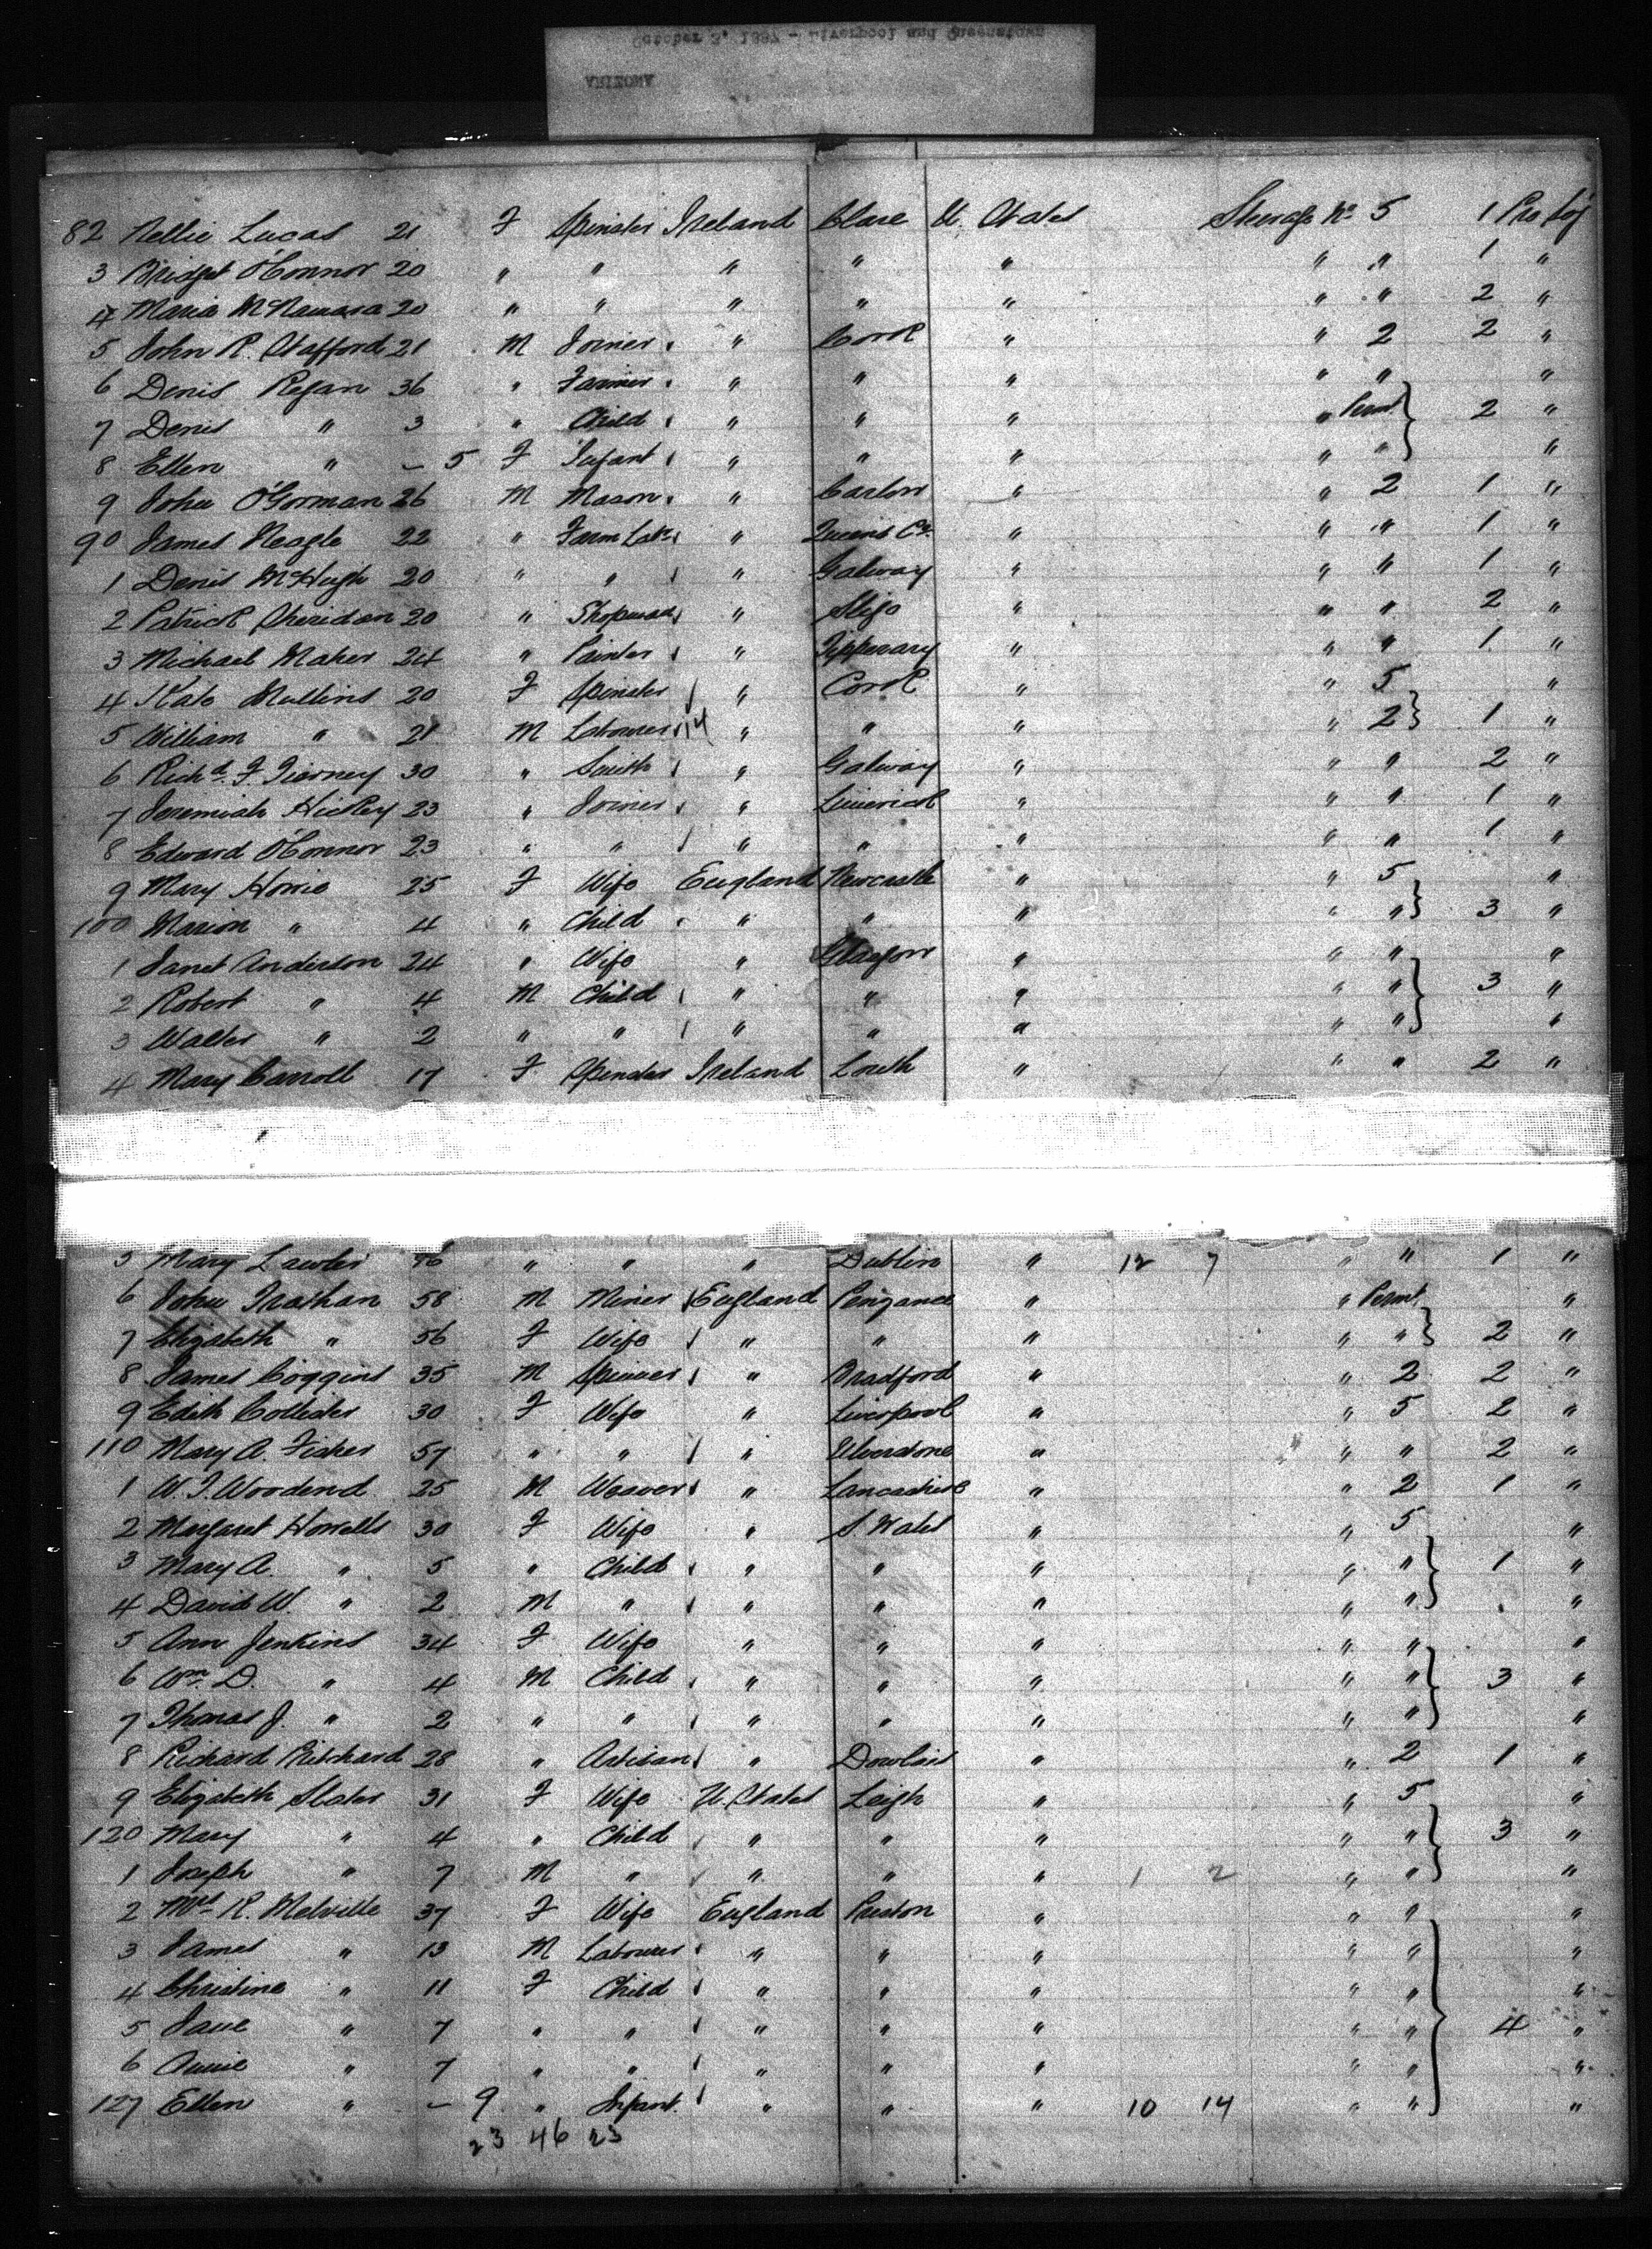 October 3, 1887 - Liverpool and Queenstown
ARIZONA
82 Nellie Lucas 21 F Spinster Ireland Clare U. States Steerage No 5 1 Pro Soj
3 Bridget O'Connor 20 " " " " " " " 1 "
4 Maria McNamara 20 " " " " " " " 2 "
5 John R. Stafford 21 M Joiner " Cork " " 2 2 "
6 Denis Regan 36 " Farmer " " " " " "
7 Denis " 3 " Child " " " " Permt 2 "
8 Ellen " - 5 F Infant " " " " " "
9 John O'Gorman 26 M Mason " Carlow " " 2 1 "
90 James Neagle 22 " Farm Labr " Queens Co. " " " 1 "
1 Denis McHugh 20 " " " Galway " " " 1 "
2 Patrick Sheridan 20 " " Sligo " " " 2 "
3 Michael Maher 24 " Painter " Tipperary " " " 1 "
4 Kate Mullins 20 F Spinster " Cork " " 5 "
5 William " 21 M Labourer 14 " " " " 2 1 "
6 Richd. F Tierney 30 " Smith " Galway " " " 2 "
7 Jeremiah Hickey 23 " Joiner " Limerick " " " 1 "
8 Edward O'Connor 23 " " " " " " " 1 "
9 Mary Howie 25 F Wife England Newcastle " " 5 "
100 Marion " 4 " Child " " " " " 3 "
1 Janet Anderson 24 " Wife " Glasgow " " " "
2 Robert " 4 M Child " " " " " 3 "
3 Walter " 2 " " " " " " " "
4 Mary Carroll 17 F Spinster Ireland Louth " " " 2 "
5 Mary Lawler " " " Dublin " 12 7 " " 1 "
6 John Trathan 58 M Miner England Penzance " " Permt "
7 Elizabeth " 56 F Wife " " " " " 2 "
8 James Coggins 35 M Spinner " Bradford " " 2 2 "
9 Edith Collister 30 F Wife " Liverpool " " 5 2 "
110 Mary A. Fisher 57 " " " Ulverstone " " " 2 "
1 W. T. Woodend 25 M Weaver " Lancashire " " 2 1 "
2 Margaret Howells 30 F Wife " S Wales " " 5 "
3 Mary A. " 5 " Child " " " " " 1 "
4 David W. " 2 M " " " " " " "
5 Ann Jenkins 34 F Wife " " " " " "
6 Wm. D. " 4 M Child " " " " " 3 "
7 Thomas J. " 2 " " " " " " " "
8 Richard Pritchard 28 " Artisan " Dowlais " " 2 1 "
9 Elizabeth Slater 31 F Wife U. States Leigh " " 5 "
120 Mary " 4 " Child " " " " " 3 "
1 Joseph " 7 M " " " " 1 2 " " "
2 Mrs R. Melville 37 F Wife England Preston " " " "
3 James " 13 M Labourer " " " " " "
4 Christina " 11 F Child " " " " " "
5 Jane " 7 " " " " " " " 4 "
6 Annie " 7 " " " " " " " "
127 Ellen " - 9 " Infant " " " 10 14 " " "
23 46 23